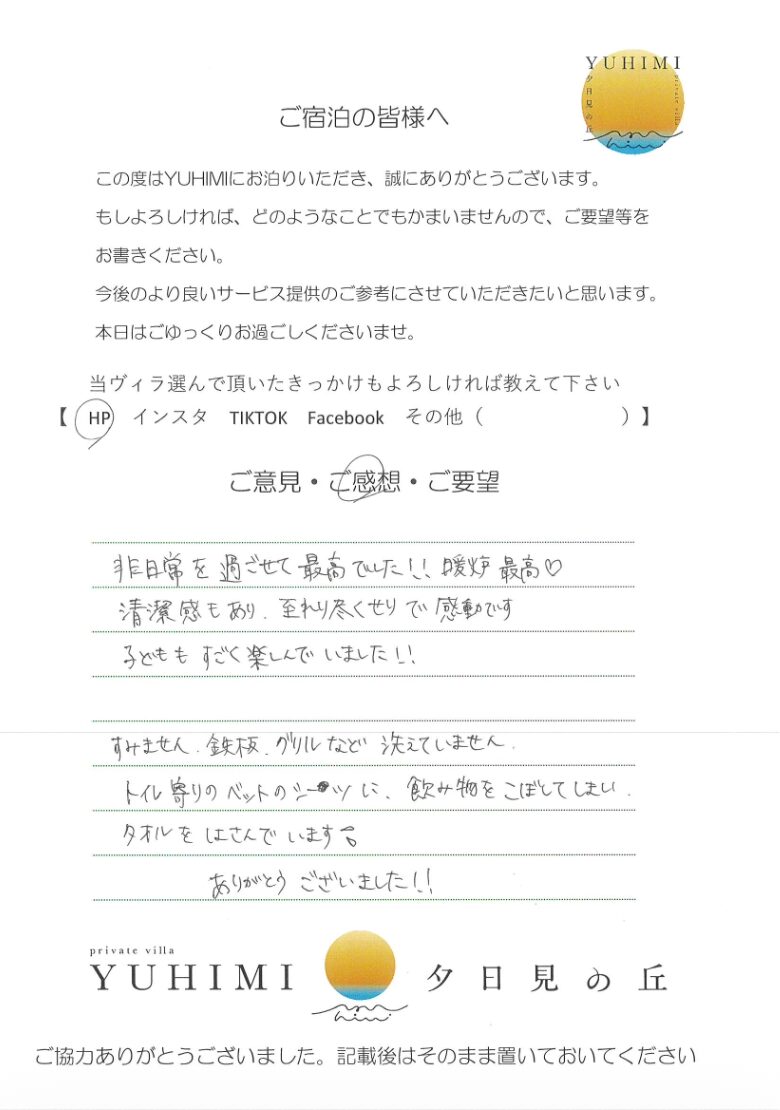 YUHIMI
夕日見の丘
private villa
ご宿泊の皆様へ
この度はYUHIMIにお泊りいただき、誠にありがとうございます。
もしよろしければ、どのようなことでもかまいませんので、ご要望等を
お書きください。
今後のより良いサービス提供のご参考にさせていただきたいと思います。
本日はごゆっくりお過ごしくださいませ。
当ヴィラ選んで頂いたきっかけもよろしければ教えて下さい
【 HP インスタ TIKTOK Facebook その他（ ）】
ご意見・ご感想・ご要望
非日常を過ごせて最高でした!! 暖炉最高♡
清潔感もあり、至れり尽くせりで感動です
子どももすごく楽しんでいました!!
すみません、鉄板、グリルなど洗えていません.
トイレ寄りのベットのシーツに、飲み物をこぼしてしまい.
タオルをはさんでいます
ありがとうございました!!
private villa
YUHIMI 夕日見の丘
ご協力ありがとうございました。記載後はそのまま置いておいてください